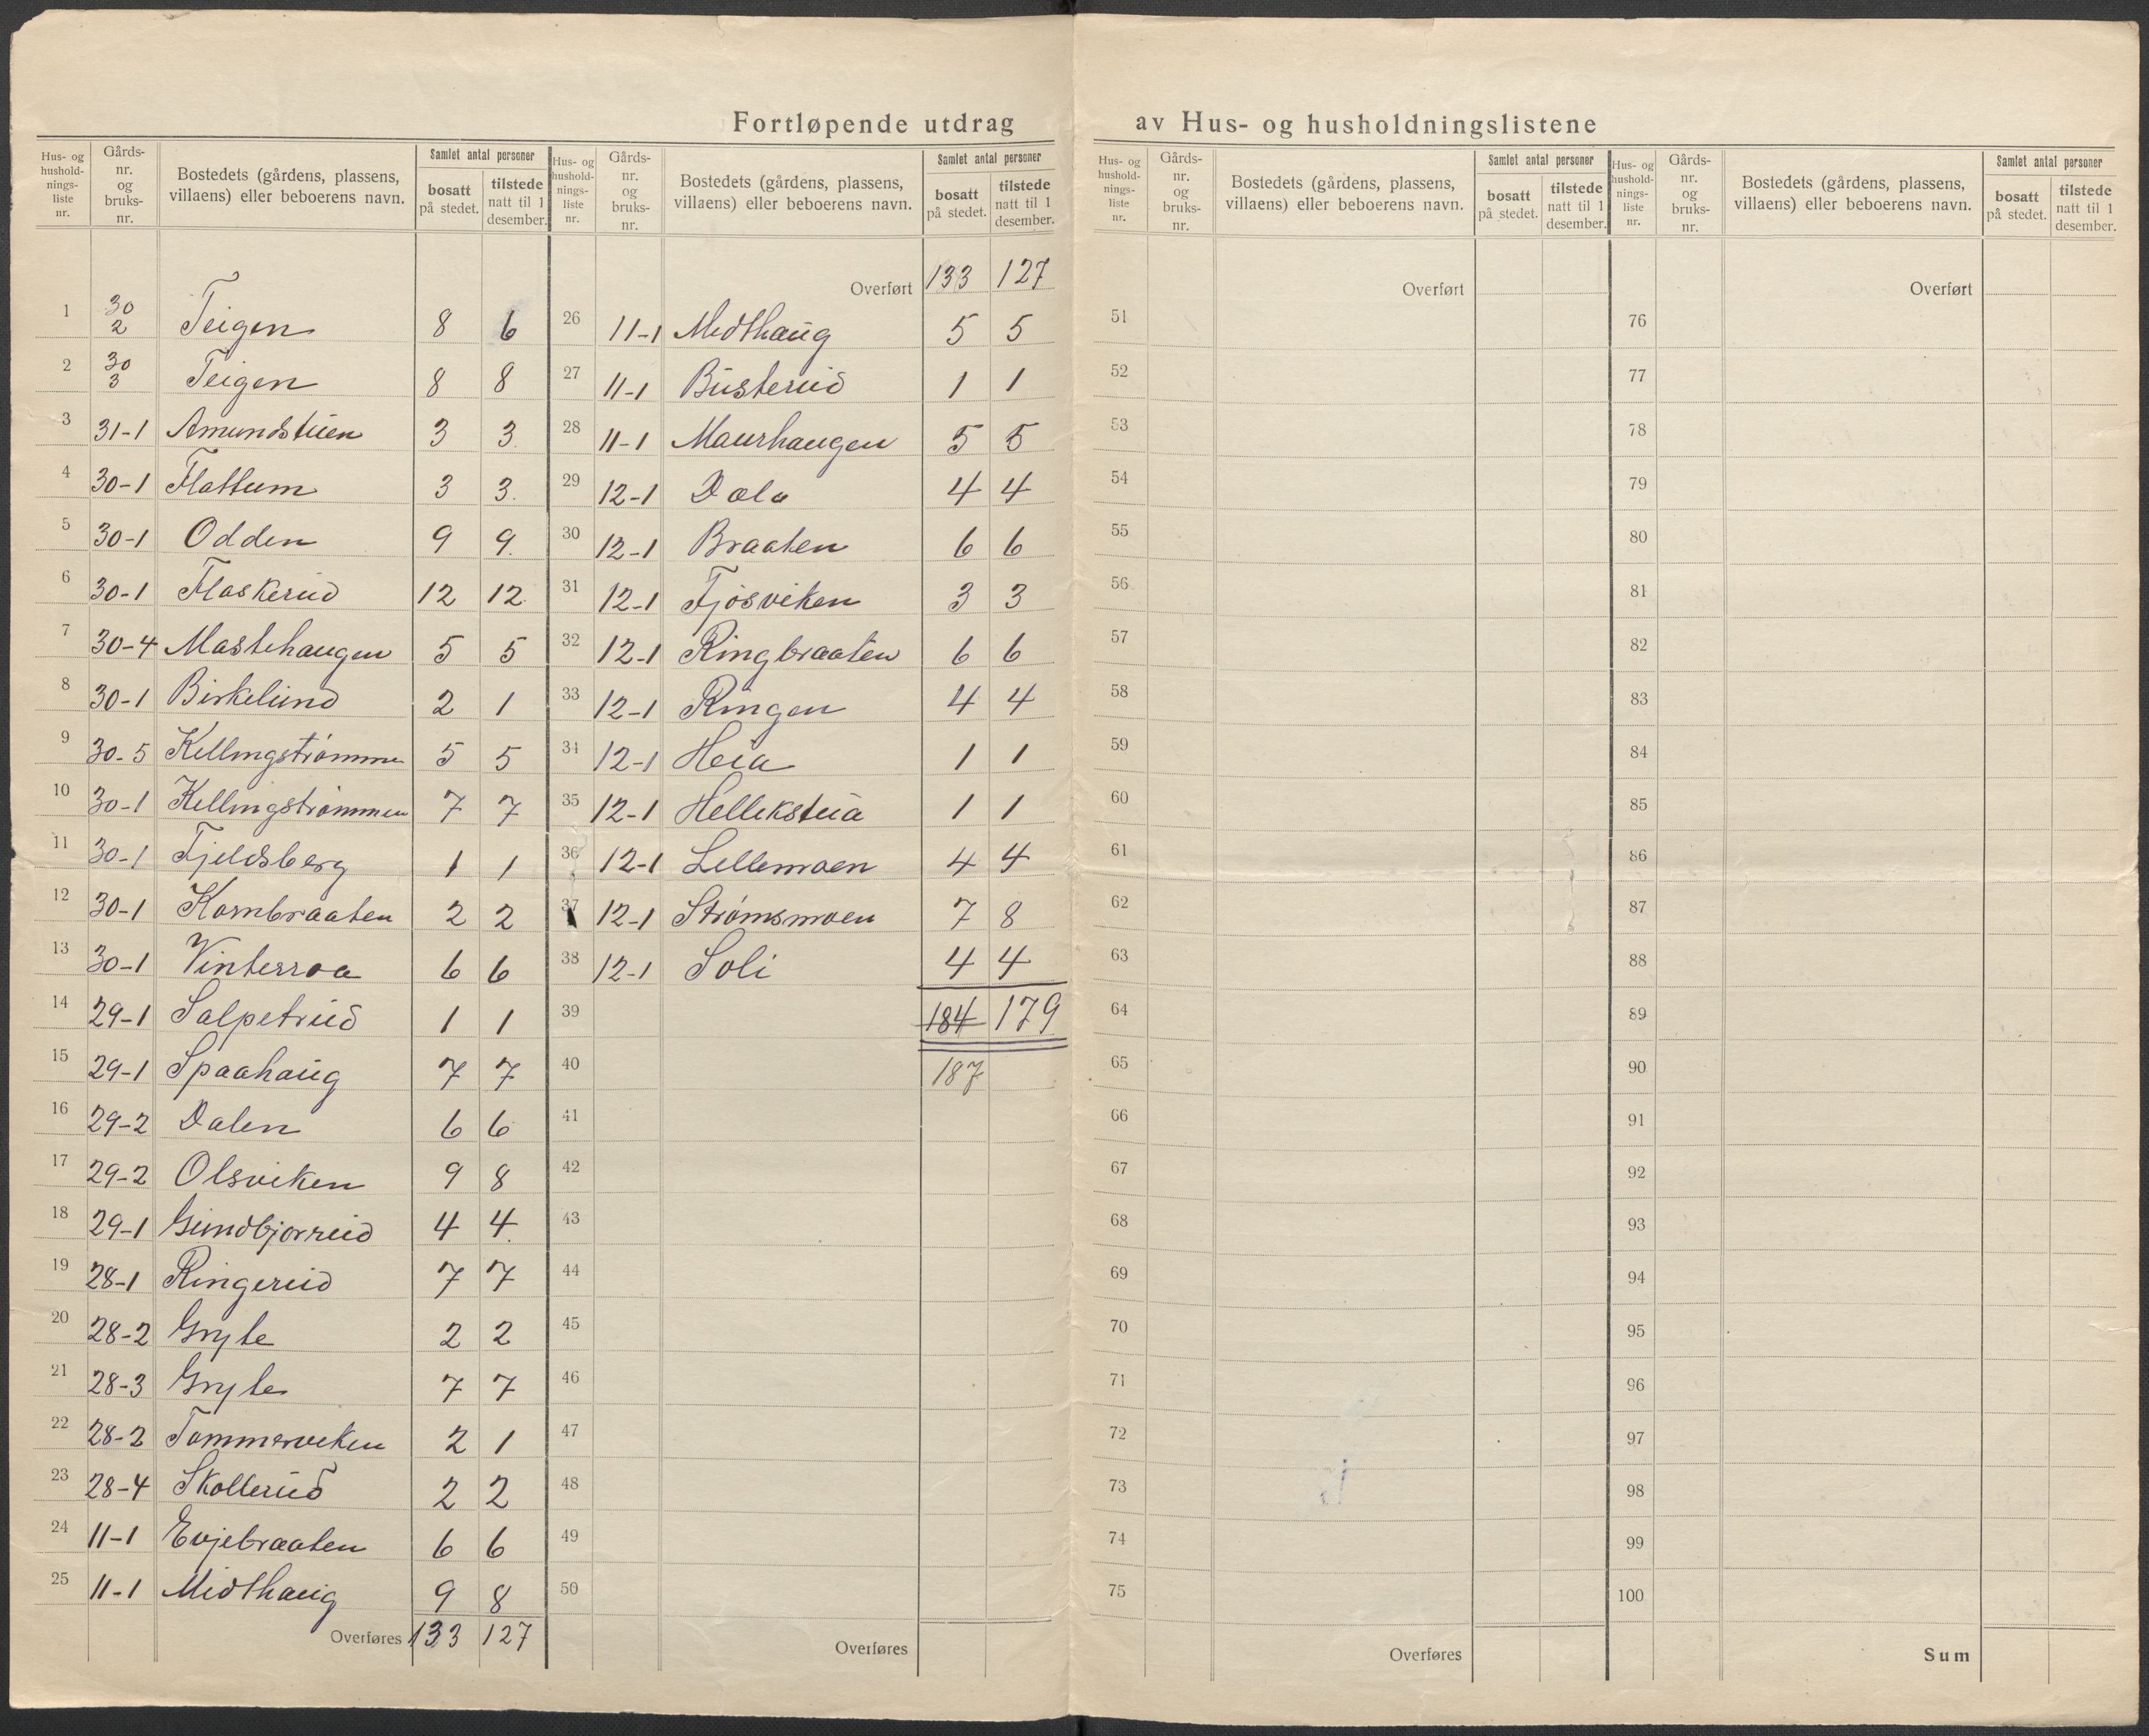 Fortløpende utdrag av Hus- og husholdningslistene
Hus- og hushold-nings-liste nr. Gårds-nr. og bruks-nr. Bostedets (gårdens, plassens, villaens) eller beboerens navn. Samlet antal personer bosatt på stedet. tilstede natt til 1 desember.
1 30 2 Teigen 8 6
2 30 3 Teigen 8 8
3 31-1 Amundstuen 3 3.
4 30-1 Flattum 3 3.
5 30-1 Odden 9 9.
6 30-1 Flaskerud 12 12.
7 30-4 Mastehaugen 5 5
8 30-1 Birkelund 2 1
9 30-5 Kellingstrømme 5 5
10 30-1 Kellingstrømmen 7 7
11 30-1 Fjeldsberg 1 1
12 30-1 Kornbraaten 2 2
13 30-1 Vinterroa 6 6
14 29-1 Salpetrud 1 1
15 29-1 Spaahaug 7 7
16 29-2 Dalen 6 6
17 29-2 Olsviken 9 8
18 29-1 Gundbjorrud 4 4.
19 28-1 Ringerud 7 7
20 28-2 Gryte 2 2
21 28-3 Gryte 7 7
22 28-2 Tømmerviken 2 1
23 28-4 Skollerud 2 2
24 11-1 Evjebraaten 6 6
25 11-1 Midthaug 9 8
Overføres 133 127
Hus- og hushold-nings-liste nr. Gårds-nr. og bruks-nr. Bostedets (gårdens, plassens, villaens) eller beboerens navn. Samlet antal personer bosatt på stedet. tilstede natt til 1 desember.
Overført 133 127
26 11-1 Midthaug 5 5
27 11-1 Busterud 1 1
28 11-1 Maurhaugen 5 5
29 12-1 Dola 4 4
30 12-1 Braaten 6 6
31 12-1 Fjøsviken 3 3
32 12-1 Ringbraaten 6 6
33 12-1 Ringen 4 4
34 12-1 Heia 1 1
35 12-1 Hellekstua 1 1
36 12-1 Lellemoen 4 4
37 12-1 Strømsmoen 7 8
38 12-1 Soli 4 4
39 184 179
40 187
41
42
43
44
45
46
47
48
49
50
Overføres
Hus- og hushold-nings-liste nr. Gårds-nr. og bruks-nr. Bostedets (gårdens, plassens, villaens) eller beboerens navn. Samlet antal personer bosatt på stedet. tilstede natt til 1 desember.
Overført
51
52
53
54
55
56
57
58
59
60
61
62
63
64
65
66
67
68
69
70
71
72
73
74
75
Overføres
Hus- og hushold-nings-liste nr. Gårds-nr. og bruks-nr. Bostedets (gårdens, plassens, villaens) eller beboerens navn. Samlet antal personer bosatt på stedet. tilstede natt til 1 desember.
Overført
76
77
78
79
80
81
82
83
84
85
86
87
88
89
90
91
92
93
94
95
96
97
98
99
100
Sum